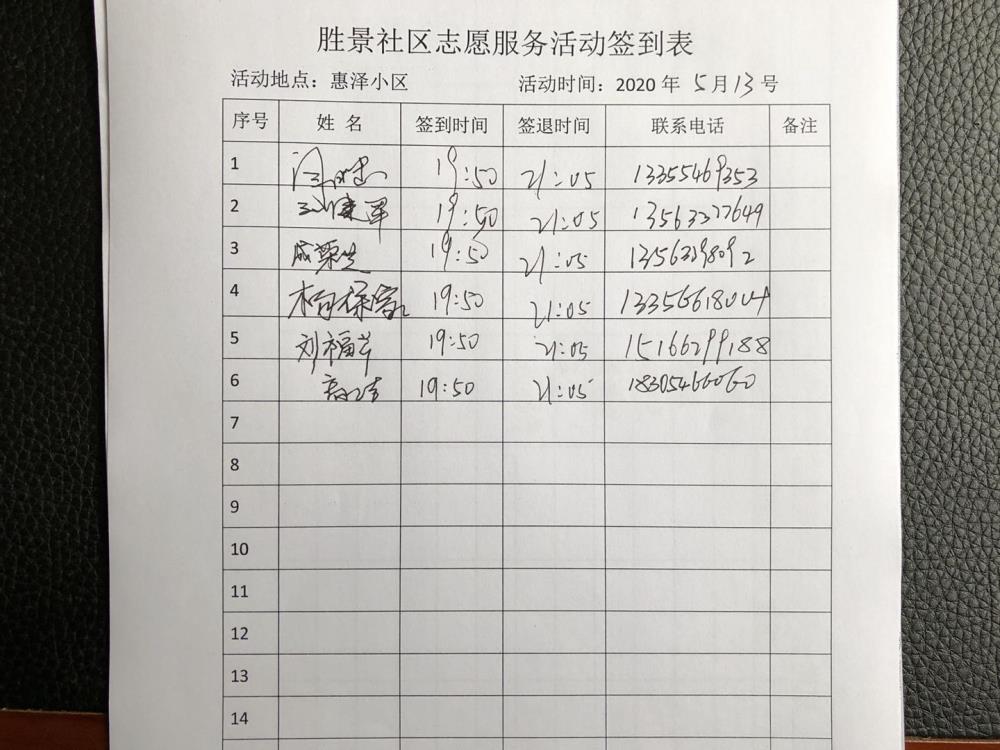 胜景社区志愿服务活动签到表
活动地点：惠泽小区 活动时间：2020 年 5 月 13 号
序号 姓 名 签到时间 签退时间 联系电话 备注
1 19:50 21:05 13355469353
2 19:50 21:05 13563327649
3 成荣先 19:50 21:05
4 19:50 21:05 13356618004
5 刘福芹 19:50 21:05 15166299188
6 19:50 21:05 18305466060
7
8
9
10
11
12
13
14